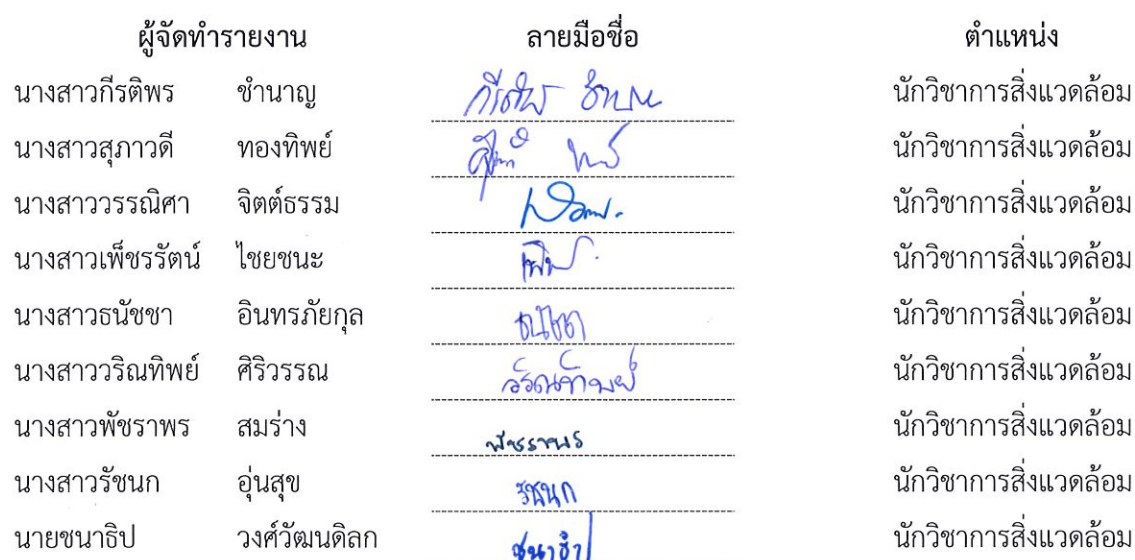 ผู้จัดทำรายงาน ลายมือชื่อ ตำแหน่ง
นางสาวกีรติพร ชำนาญ กีรติพร ชำนาญ นักวิชาการสิ่งแวดล้อม
นางสาวสุภาวดี ทองทิพย์ นักวิชาการสิ่งแวดล้อม
นางสาววรรณิศา จิตต์ธรรม นักวิชาการสิ่งแวดล้อม
นางสาวเพ็ชรรัตน์ ไชยชนะ นักวิชาการสิ่งแวดล้อม
นางสาวธนัชชา อินทรภัยกุล ธนัชชา นักวิชาการสิ่งแวดล้อม
นางสาววริณทิพย์ ศิริวรรณ วริณทิพย์ นักวิชาการสิ่งแวดล้อม
นางสาวพัชราพร สมร่าง พัชราพร นักวิชาการสิ่งแวดล้อม
นางสาวรัชนก อุ่นสุข รัชนก นักวิชาการสิ่งแวดล้อม
นายชนาธิป วงศ์วัฒนดิลก ชนาธิป นักวิชาการสิ่งแวดล้อม